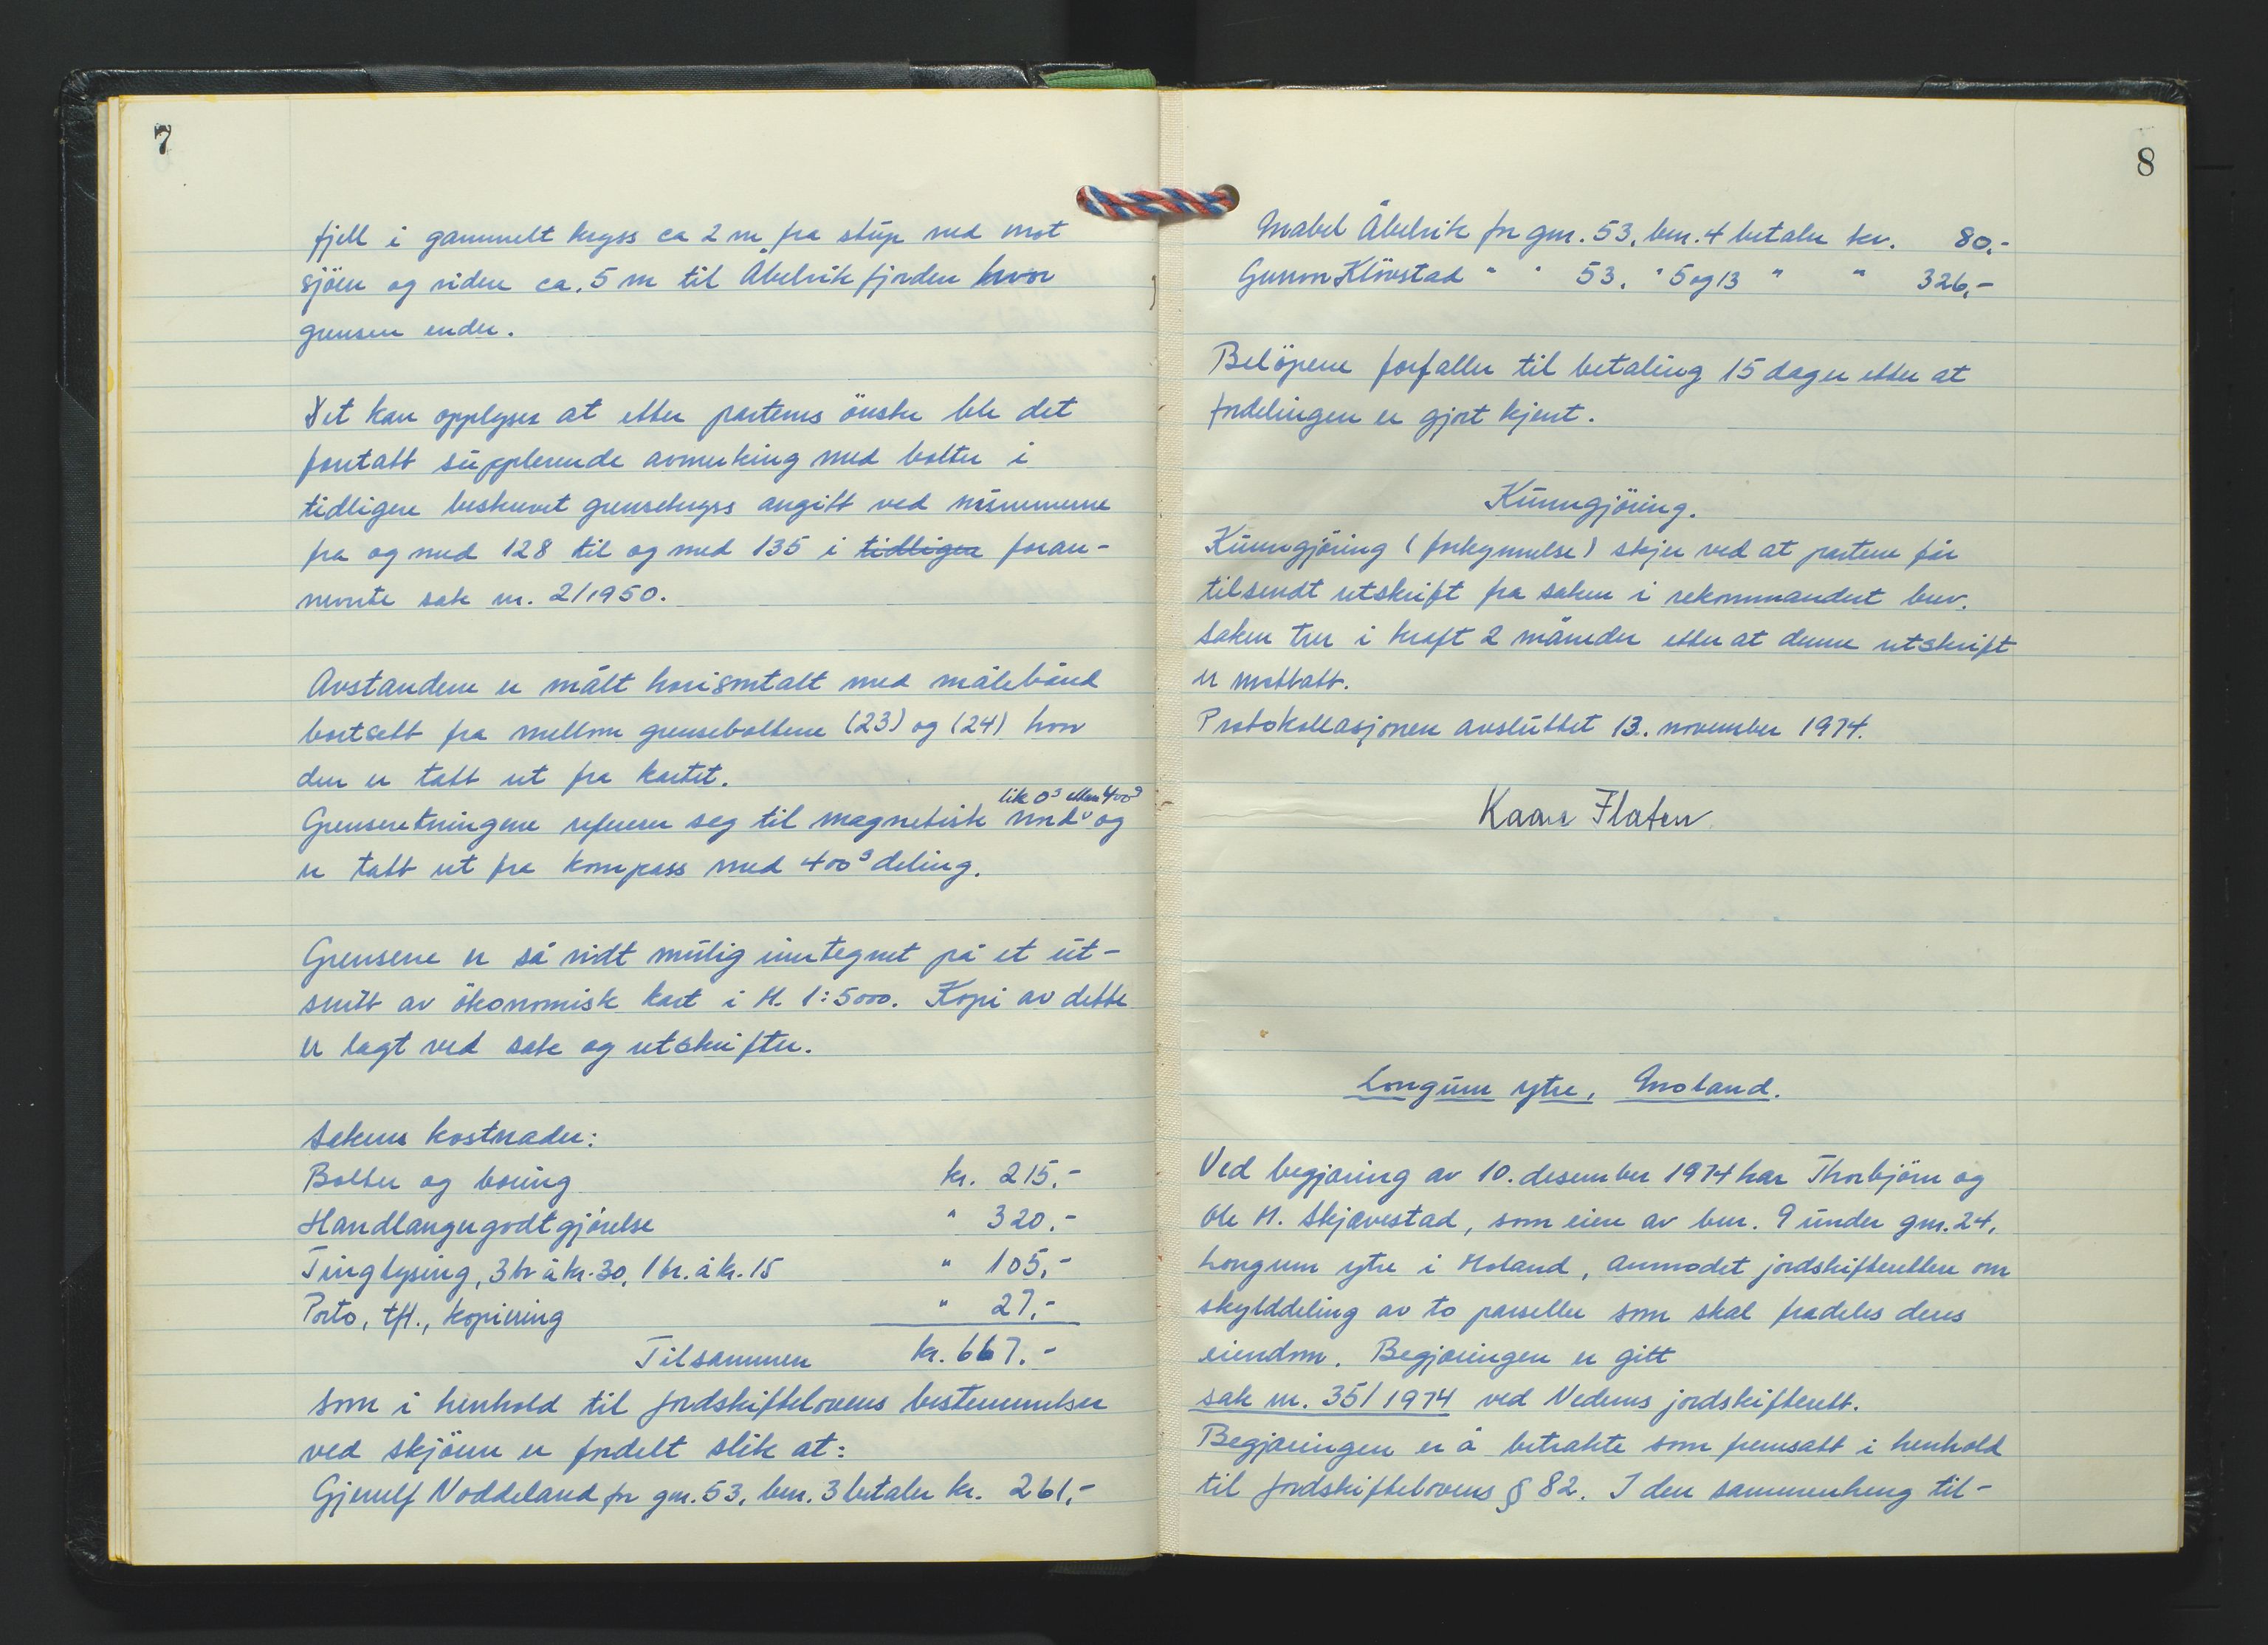 7
fjell i gammelt kryss ca 2 m fra stup ned mot
sjöen og videre ca. 5 m til Åbelvikfjorden hvor
grensen ender.
Det kan opplyses at etter partenes önske ble det
foretatt supplerende avmerking med bolter i
tidligere beskrevet grensekryss angitt ved nummerne
fra og med 128 til og med 135 i tidligere foran-
nevnte sak nr. 2/1950.
Avstandene er målt horisontalt med målebånd
bortsett fra mellom grenseboltene (23) og (24) hvor
den er tatt ut fra kartet.
lik 0g eller 400g
Grenseretningene referer seg til magnetisk nord og
er tatt ut fra kompass med 400g deling.
Grensene er så vidt mulig inntegnet på et ut-
snitt av ökonomisk kart i M. 1:5000. Kopi av dette
er lagt ved sak og utskrifter.
Sakens kostnader:
Bolter og boring kr. 215.-
Handlangergodtgjörelse " 320.-
Tinglysing, 3 br à kr. 30, 1 br. à kr. 15 " 105,-
Porto, tlf., kopiering " 27.-
Tilsammen kr. 667.-
som i henhold til jordskiftelovens bestemmelser
ved skjönn er fordelt slik at:
Gjerulf Noddeland for gnr. 53, bnr. 3 betaler kr. 261,-
8
Mabel Åbelvik for gnr. 53, bnr. 4 betaler kr. 80,-
Gunvor Klövstad " " 53, " 5 og 13 " " 326,-
Belöpene forfaller til betaling 15 dager etter at
fordelingen er gjort kjent.
Kunngjöring.
Kunngjöring (forkynnelse) skjer ved at partene får
tilsendt utskrift fra saken i rekommandert brev.
Saken trer i kraft 2 måneder etter at denne utskrift
er mottatt.
Protokollasjonen avsluttet 13. november 1974.
Kaare Flaten
Longum ytre, Moland.
Ved begjæring av 10. desember 1974 har Thorbjörn og
Ole M. Skjævestad, som eiere av bnr. 9 under gnr. 24,
Longum ytre i Moland, anmodet jordskifteretten om
skylddeling av to parseller som skal fradeles deres
eiendom. Begjæringen er gitt
sak nr. 35/1974 ved Nedenes jordskifterett.
Begjæringen er å betrakte som fremsatt i henhold
til jordskiftelovens § 82. I den sammenheng til-